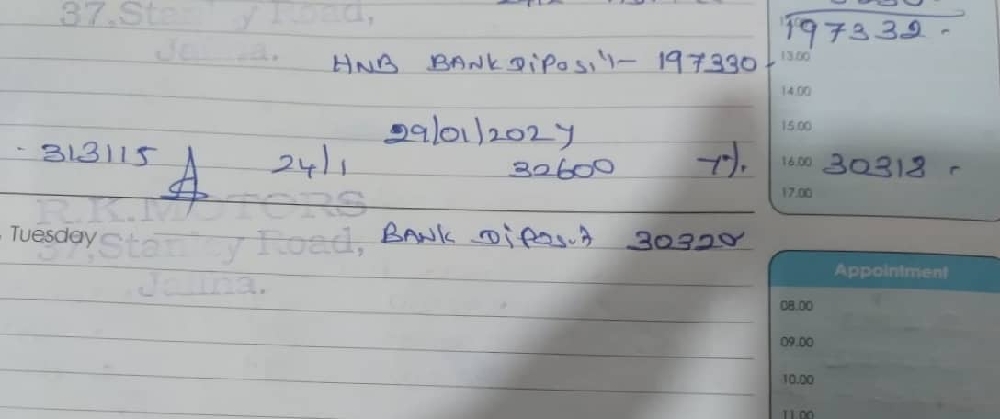 37, Stanley Road,
197332 -
Jaffna.
HNB BANK DiPosit - 197330
13.00
14.00
29/01/2024
15.00
313115 24/1 32600 7%. 16.00 30318 -
17.00
R.K.MOTORS
Tuesday
37, Stanley Road, BANK DiPosit 30320
Jaffna.
Appointment
08.00
09.00
10.00
11.00